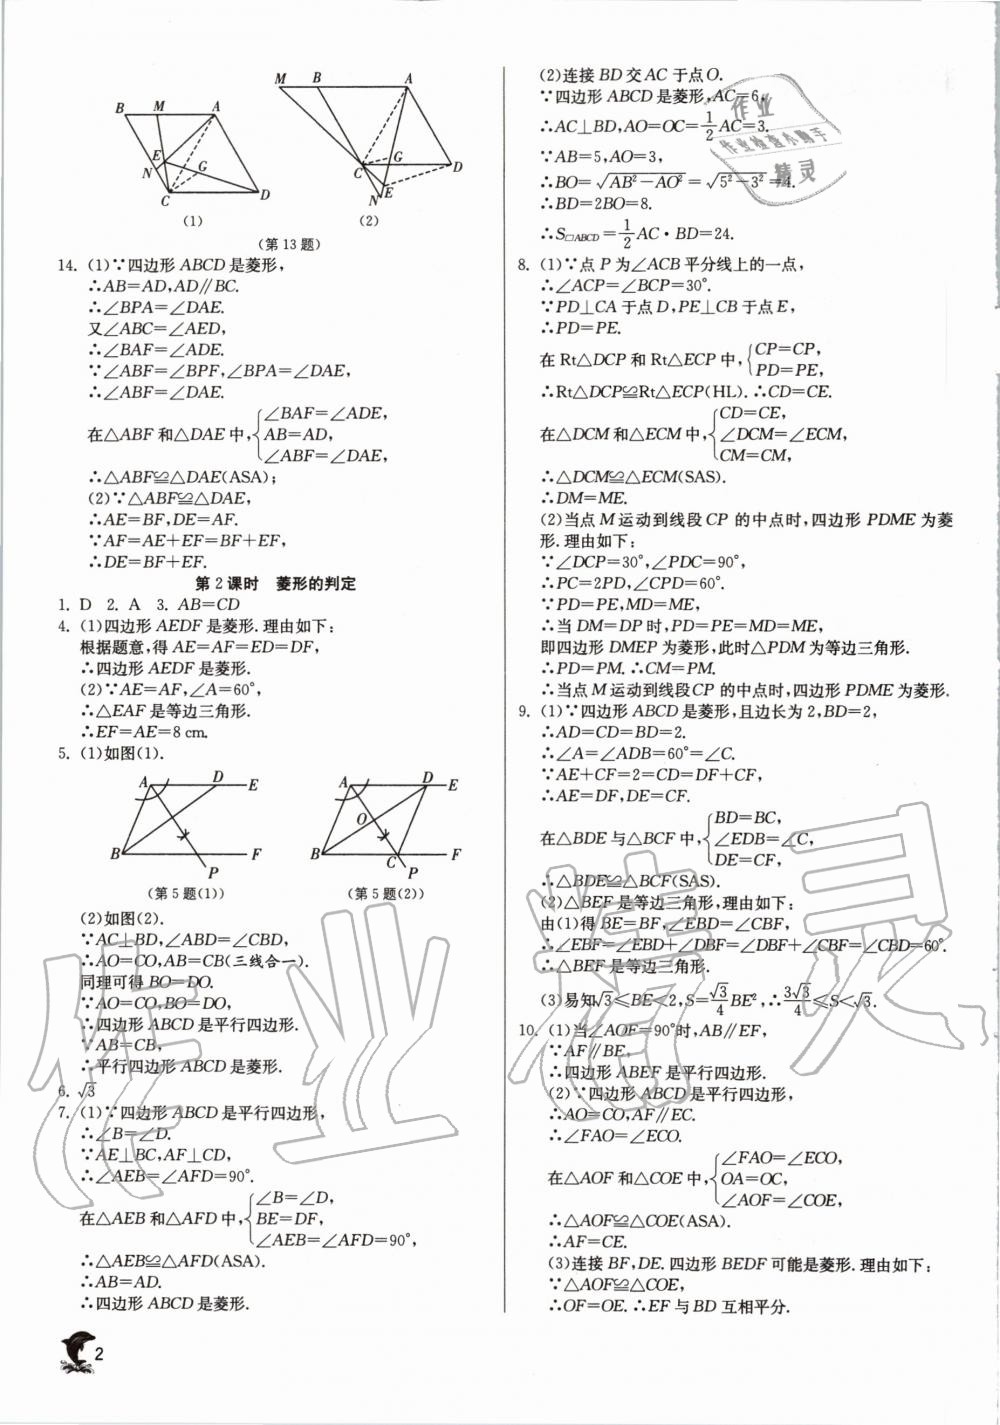 B M A
E
N
G
C D
(1)
M B A
G
C D
E
N
(2)
(第13题)
14. (1)∵四边形ABCD是菱形，
∴AB=AD,AD∥BC.
∴∠BPA=∠DAE.
又∠ABC=∠AED，
∴∠BAF=∠ADE.
∵∠ABF=∠BPF,∠BPA=∠DAE，
∴∠ABF=∠DAE.
在△ABF和△DAE中，{∠BAF=∠ADE，
AB=AD，
∠ABF=∠DAE，
∴△ABF≌△DAE(ASA)；
(2)∵△ABF≌△DAE，
∴AE=BF,DE=AF.
∵AF=AE+EF=BF+EF，
∴DE=BF+EF.
第2课时 菱形的判定
1. D 2. A 3. AB=CD
4. (1)四边形AEDF是菱形.理由如下：
根据题意,得AE=AF=ED=DF，
∴四边形AEDF是菱形.
(2)∵AE=AF,∠A=60°，
∴△EAF是等边三角形.
∴EF=AE=8 cm.
5. (1)如图(1).
A D E
B F
P
(第5题(1))
A D E
O
B C F
P
(第5题(2))
(2)如图(2).
∵AC⊥BD,∠ABD=∠CBD，
∴AO=CO,AB=CB(三线合一).
同理可得BO=DO.
∵AO=CO,BO=DO，
∴四边形ABCD是平行四边形.
∵AB=CB，
∴平行四边形ABCD是菱形.
6. √3
7. (1)∵四边形ABCD是平行四边形，
∴∠B=∠D.
∵AE⊥BC,AF⊥CD，
∴∠AEB=∠AFD=90°.
在△AEB和△AFD中，{∠B=∠D，
BE=DF，
∠AEB=∠AFD=90°，
∴△AEB≌△AFD(ASA).
∴AB=AD.
∴四边形ABCD是菱形.
2
(2)连接BD交AC于点O.
∵四边形ABCD是菱形,AC=6，
∴AC⊥BD,AO=OC=1/2AC=3.
∵AB=5,AO=3，
∴BO=√(AB²−AO²)=√(5²−3²)=4.
∴BD=2BO=8.
∴S□ABCD=1/2AC·BD=24.
8. (1)∵点P为∠ACB平分线上的一点，
∴∠ACP=∠BCP=30°.
∵PD⊥CA于点D,PE⊥CB于点E，
∴PD=PE.
在Rt△DCP和Rt△ECP中，{CP=CP，
PD=PE，
∴Rt△DCP≌Rt△ECP(HL).∴CD=CE.
在△DCM和△ECM中，{CD=CE，
∠DCM=∠ECM，
CM=CM，
∴△DCM≌△ECM(SAS).
∴DM=ME.
(2)当点M运动到线段CP的中点时,四边形PDME为菱
形.理由如下：
∵∠DCP=30°,∠PDC=90°，
∴PC=2PD,∠CPD=60°.
∵PD=PE,MD=ME，
∴当DM=DP时,PD=PE=MD=ME，
即四边形DMEP为菱形,此时△PDM为等边三角形.
∴PD=PM.∴CM=PM.
∴当点M运动到线段CP的中点时,四边形PDME为菱形.
9. (1)∵四边形ABCD是菱形,且边长为2,BD=2，
∴AD=CD=BD=2.
∴∠A=∠ADB=60°=∠C.
∵AE+CF=2=CD=DF+CF，
∴AE=DF,DE=CF.
在△BDE与△BCF中，{BD=BC，
∠EDB=∠C，
DE=CF，
∴△BDE≌△BCF(SAS).
(2)△BEF是等边三角形,理由如下：
由(1)得BE=BF,∠EBD=∠CBF，
∴∠EBF=∠EBD+∠DBF=∠DBF+∠CBF=∠CBD=60°.
∴△BEF是等边三角形.
(3)易知√3≤BE<2,S=√3/4BE²,∴3√3/4≤S<√3.
10. (1)当∠AOF=90°时,AB∥EF，
∵AF∥BE，
∴四边形ABEF是平行四边形.
(2)∵四边形ABCD是平行四边形，
∴AO=CO,AF∥EC.
∴∠FAO=∠ECO.
在△AOF和△COE中，{∠FAO=∠ECO，
OA=OC，
∠AOF=∠COE，
∴△AOF≌△COE(ASA).
∴AF=CE.
(3)连接BF,DE.四边形BEDF可能是菱形.理由如下：
∵△AOF≌△COE，
∴OF=OE.∴EF与BD互相平分.
作业
作业检查小助手
精灵
作业精灵